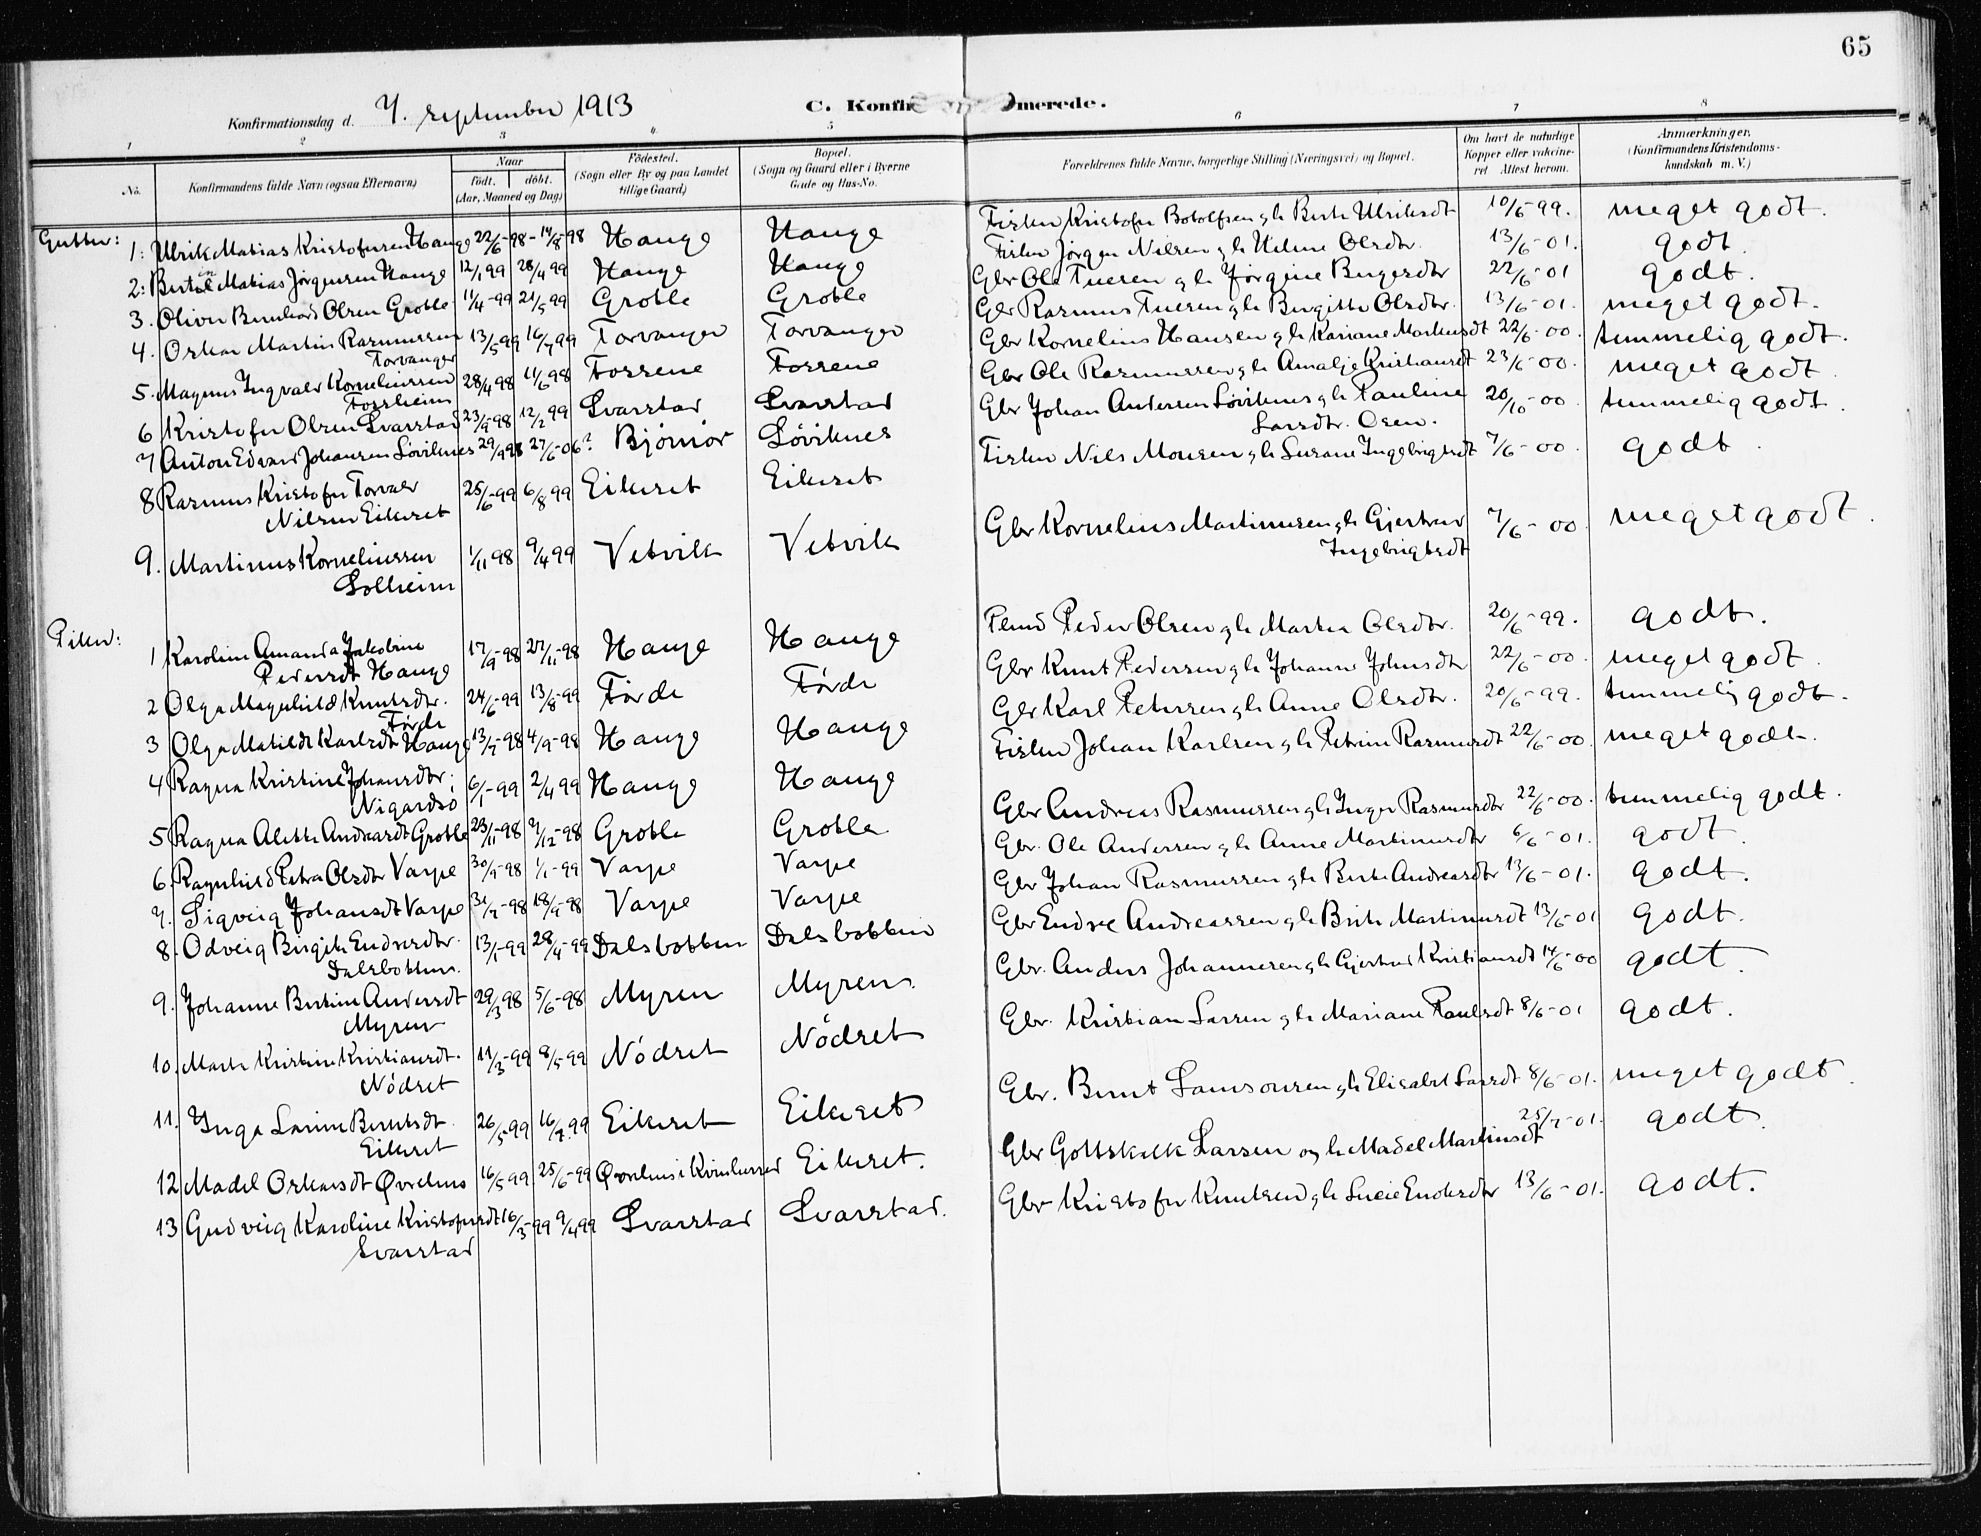 65
Konfirmationsdag d. 7. september 1913
C. Konfir merede.
1 2 3 4 5 6 7 8
No. Konfirmandens fulde Navn (ogsaa Efternavn) Naar født. døbt. (Aar, Maaned og Dag) Fødested. (Sogn eller By og paa Landet tillige Gaard) Bopæl. (Sogn og Gaard eller i Byerne Gade og Hus-No. Forældrenes fulde Navne, borgerlige Stilling (Næringsvei) og Bopæl. Om havt de naturlige Kopper eller vakcineret Attest herom. Anmærkninger. (Konfirmandens Kristendomskundskab m. V.)
Gutter:
1. Ulrik Matias Kristofersen Hauge 22/6-98 - 14/8-98 Hauge Hauge Fisker Kristofer Botolfsen og h Berte Ulriksdt 10/6-99. meget godt.
2. Matias Jørgensen Hauge 12/1 99 28/4 99 Hauge Hauge Fisker Jørgen Nilsen og h Helene Olsdtr. 13/6-01. godt
3. Oliver Bernhard Olsen Grotle 11/4-99 21/5 99 Grotle Grotle Gbr Ole Iversen og h Jørgine Bøgersdtr 22/6-01 godt.
4. Oskar Martin Rasmussen Torvanger 13/5 99 16/7 99 Torvanger Torvanger Gbr Rasmus Iversen og h Birgitte Olsdtr. 13/6-01. meget godt.
5. Magnus Ingvald Korneliussen Fossheim 28/4 98 11/6 98 Fossene Fossene Gbr Kornelius Hansen og h Kariane Markusdt 22/6-00. temmelig godt.
6 Kristofer Olsen Svarstad 23/9-98 12/2 99 Svarstad Svarstad Gbr Ole Rasmussen og h Amalje Kristiansdt 23/6-00. meget godt.
7 Anton Edvard Johansen Løviknes 29/9 98 27/6-06? Bjørnør Løviknes Gbr Johan Andersen Løviknes og h Pauline Larsdtr. Osen. 20/10-00. temmelig godt.
8 Rasmus Kristofer Torvald Nilsen Eikeset 25/6-99 6/8 99 Eikeset Eikeset Fisker Nils Monsen og h Susane Ingebrigtsdt 7/6-00. godt.
9. Martinus Korneliussen Solheim 1/11 98 9/4 99 Vetvik Vetvik Gbr Kornelius Martinusen og h Gjertrud Ingebrigtsdt 7/6-00. meget godt.
Piker:
1 Karoline Amanda Jakobine Pedersdt Hauge 17/9-98 27/11-98 Hauge Hauge Peder Olsen og h Martea Olsdtr. 20/6-99. godt.
2 Olga Magnhild Knutsdtr. Førde 24/6-99 13/8-99 Førde Førde Gbr Knut Pedersen og h Johanne Johnsdtr 22/6-00. meget godt.
3 Olga Matilde Karlsdt Hauge 13/7-98 4/9-98 Hauge Hauge Gbr Karl Petersen og h Anne Olsdtr. 20/6-99. temmelig godt.
4 Ragna Kristine Johansdtr. Nigardsø 6/1-99 2/4 99 Hauge Hauge Fisker Johan Karlsen og h Petrine Rasmusdt 22/6-00. meget godt.
5 Ragna Alette Andreasdt Grotle 23/11-98 7/12-98 Grotle Grotle Gbr Andreas Rasmussen og h Inger Rasmusdtr 22/6-00. temmelig godt.
6. Ragnhild Petra Olsdtr Varpe 30/9-98 1/1-99 Varpe Varpe Gbr. Ole Andersen og h Anne Martinusdtr 6/6-01. godt.
7. Sigveig Johansdt Varpe 31/7-98 18/9-98 Varpe Varpe Gbr Johan Rasmussen og h Berte Andreasdtr 13/6-01. godt.
8. Odveig Birgite Endresdtr. Dalsbotten. 13/1-99 28/4-99 Dalsbotten Dalsbotten Gbr Endre Andreassen og h Brite Martinusdt 13/6-01 godt.
9. Johanne Bertine Andersdt Myren 29/3 98 5/6-98 Myren Myren. Gbr. Anders Johannesen og h Gjertrud Kristiansdt 14/6-00 godt.
10. Marte Kristine Kristiansdt. Nødset 11/3-99 8/5 99 Nødset Nødset Gbr. Kristian Larsen og h Mariane Paulsdt 8/6-01 godt.
11. Inga Larine Berntsdt. Eikeset 26/5 99 16/7.99 Eikeset Eikeset Gbr. Bernt Samsonsen og h Elisabet Larsdt 8/6-01. meget godt.
12 Madel Oskarsdt Øvrelius 16/5 99 25/6-99 Øvrelius i Kvinherred Eikeset. Gbr Gottskalk Larsen og h Madel Martinsdt 25/7-01. godt.
13 Gudveig Karoline Kristofersdt Svarstad 16/3-99 9/4 99 Svarstad Svarstad. Gbr Kristofer Knutsen og h Lucie Endersdtr 13/6-01. godt.